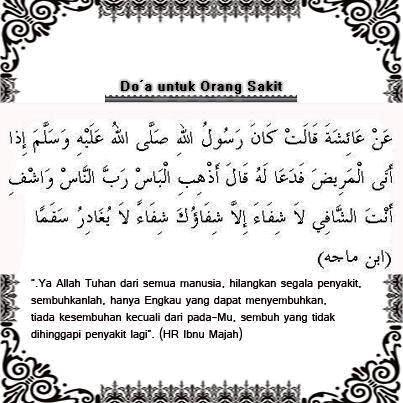 Do´a untuk Orang Sakit
عَنْ عَائِشَةَ قَالَتْ كَانَ رَسُولُ اللهِ صَلَّى اللهُ عَلَيْهِ وَسَلَّمَ إِذا
أَتَى الْمَرِيضَ فَدَعَا لَهُ قَالَ أَذْهِبِ الْبَاسْ رَبَّ النَّاسْ وَاشْفِ
أَنْتَ الشَّافِي لاَ شِفَاءَ إِلاَّ شِفَاؤُكَ شِفَاءً لاَ يُغَادِرُ سَقَمًا
(ابن ماجه)
“.Ya Allah Tuhan dari semua manusia, hilangkan segala penyakit,
sembuhkanlah, hanya Engkau yang dapat menyembuhkan,
tiada kesembuhan kecuali dari pada-Mu, sembuh yang tidak
dihinggapi penyakit lagi”. (HR Ibnu Majah)